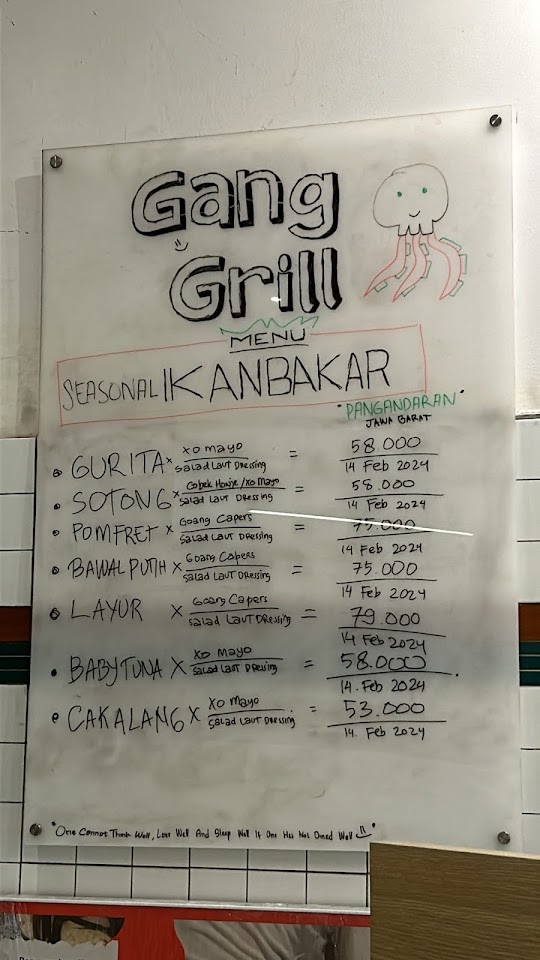 Gang
Grill
MENU
SEASONAL IKANBAKAR
"PANGANDARAN"
JAWA BARAT
GURITA x XO mayo / Salad Laut Dressing = 58.000 / 14 Feb 2024
SOTONG x Cobek Honje/XO Mayo / Salad Laut Dressing = 58.000 / 14 Feb 2024
POMFRET x Goang Capers / Salad Laut Dressing = 75.000 / 14 Feb 2024
BAWAL PUTIH x Goang Capers / Salad Laut Dressing = 75.000 / 14 Feb 2024
LAYUR x Goang Capers / Salad Laut Dressing = 79.000 / 14 Feb 2024
BABYTUNA x XO Mayo / Salad Laut Dressing = 58.000 / 14. Feb 2024
CAKALANG x XO Mayo / Salad Laut Dressing = 53.000 / 14. Feb 2024
"One Cannot Think Well, Love Well And Sleep Well If One Has Not Dined Well"